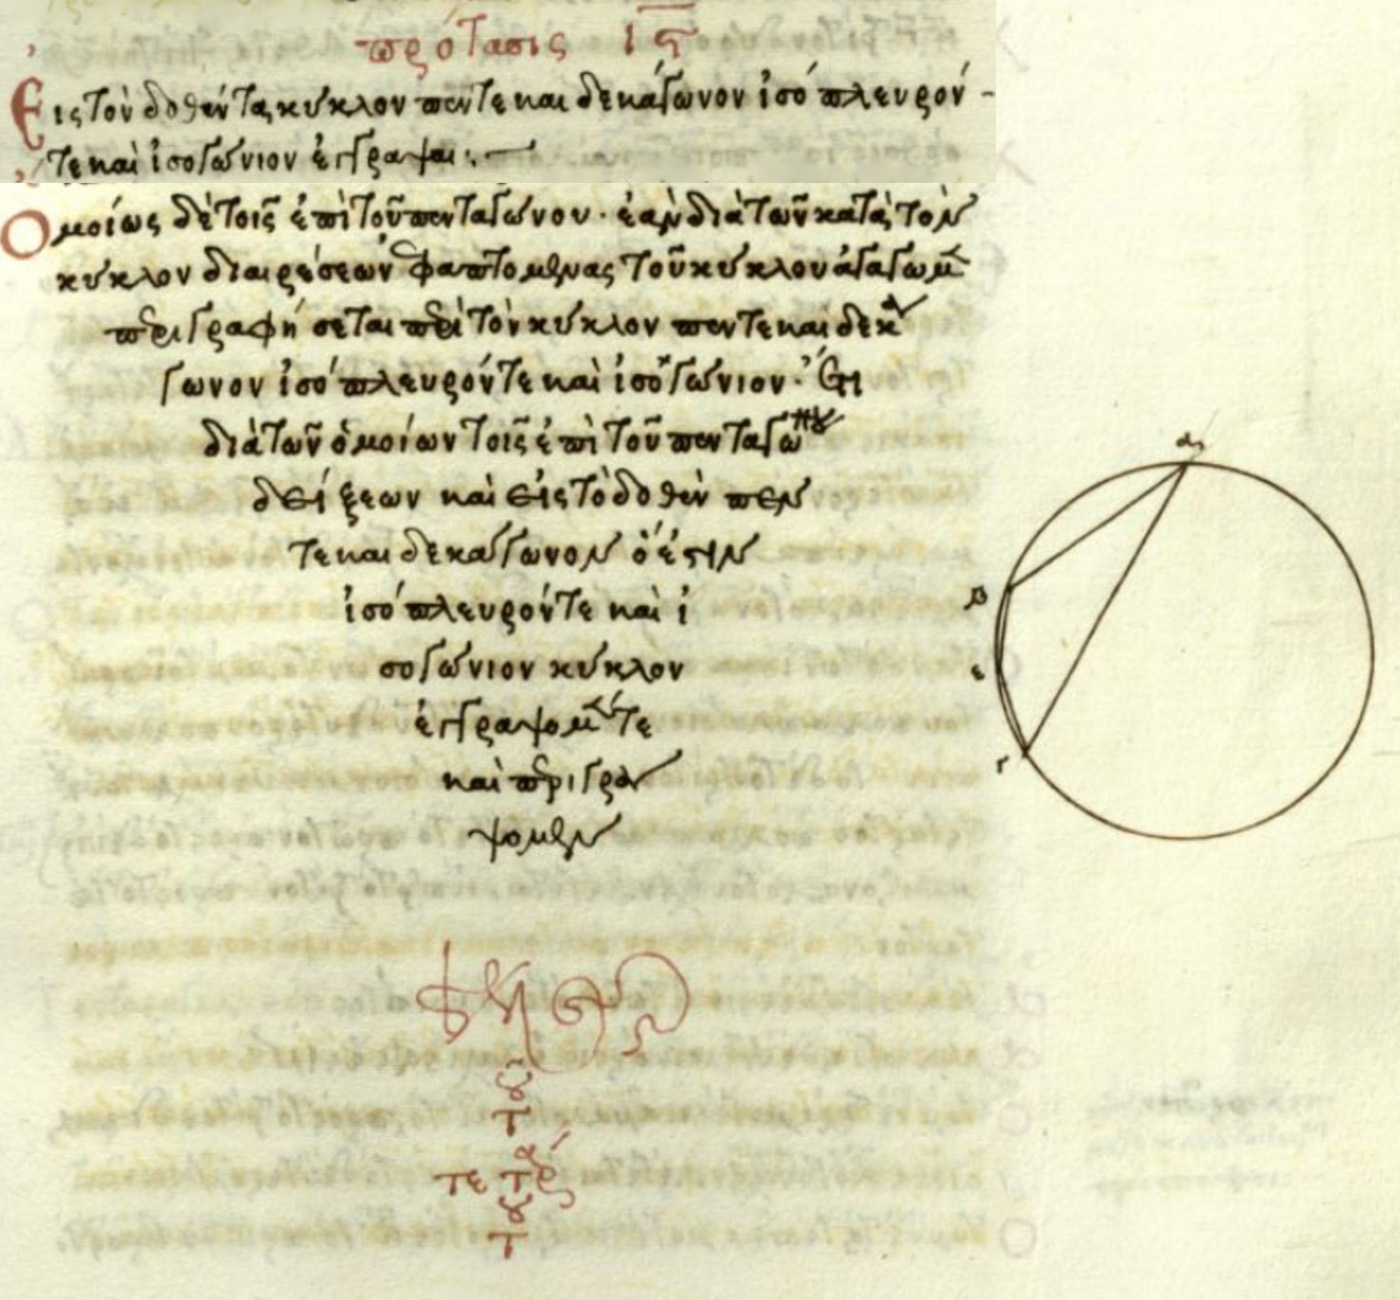 πρότασις ιϛ
Εἰς τὸν δοθέντα κύκλον πεντεκαιδεκάγωνον ἰσόπλευρόν
τε καὶ ἰσογώνιον ἐγγράψαι:
Ὁμοίως δὲ τοῖς ἐπὶ τοῦ πενταγώνου· ἐὰν διὰ τῶν κατὰ τὸν
κύκλον διαιρέσεων ἐφαπτομένας τοῦ κύκλου ἀγάγωμεν
περιγραφήσεται περὶ τὸν κύκλον πεντεκαιδεκά
γωνον ἰσόπλευρόν τε καὶ ἰσογώνιον· Ἔτι
διὰ τῶν ὁμοίων τοῖς ἐπὶ τοῦ πενταγώνου
δείξεων καὶ εἰς τὸ δοθὲν πεν
τεκαιδεκάγωνον ὅ ἐστιν
ἰσόπλευρόν τε καὶ ἰ
σογώνιον κύκλον
ἐγγράψομέν τε
καὶ περιγρά
ψομεν
α
β
ε
γ
τοῦ
τετάρ
του